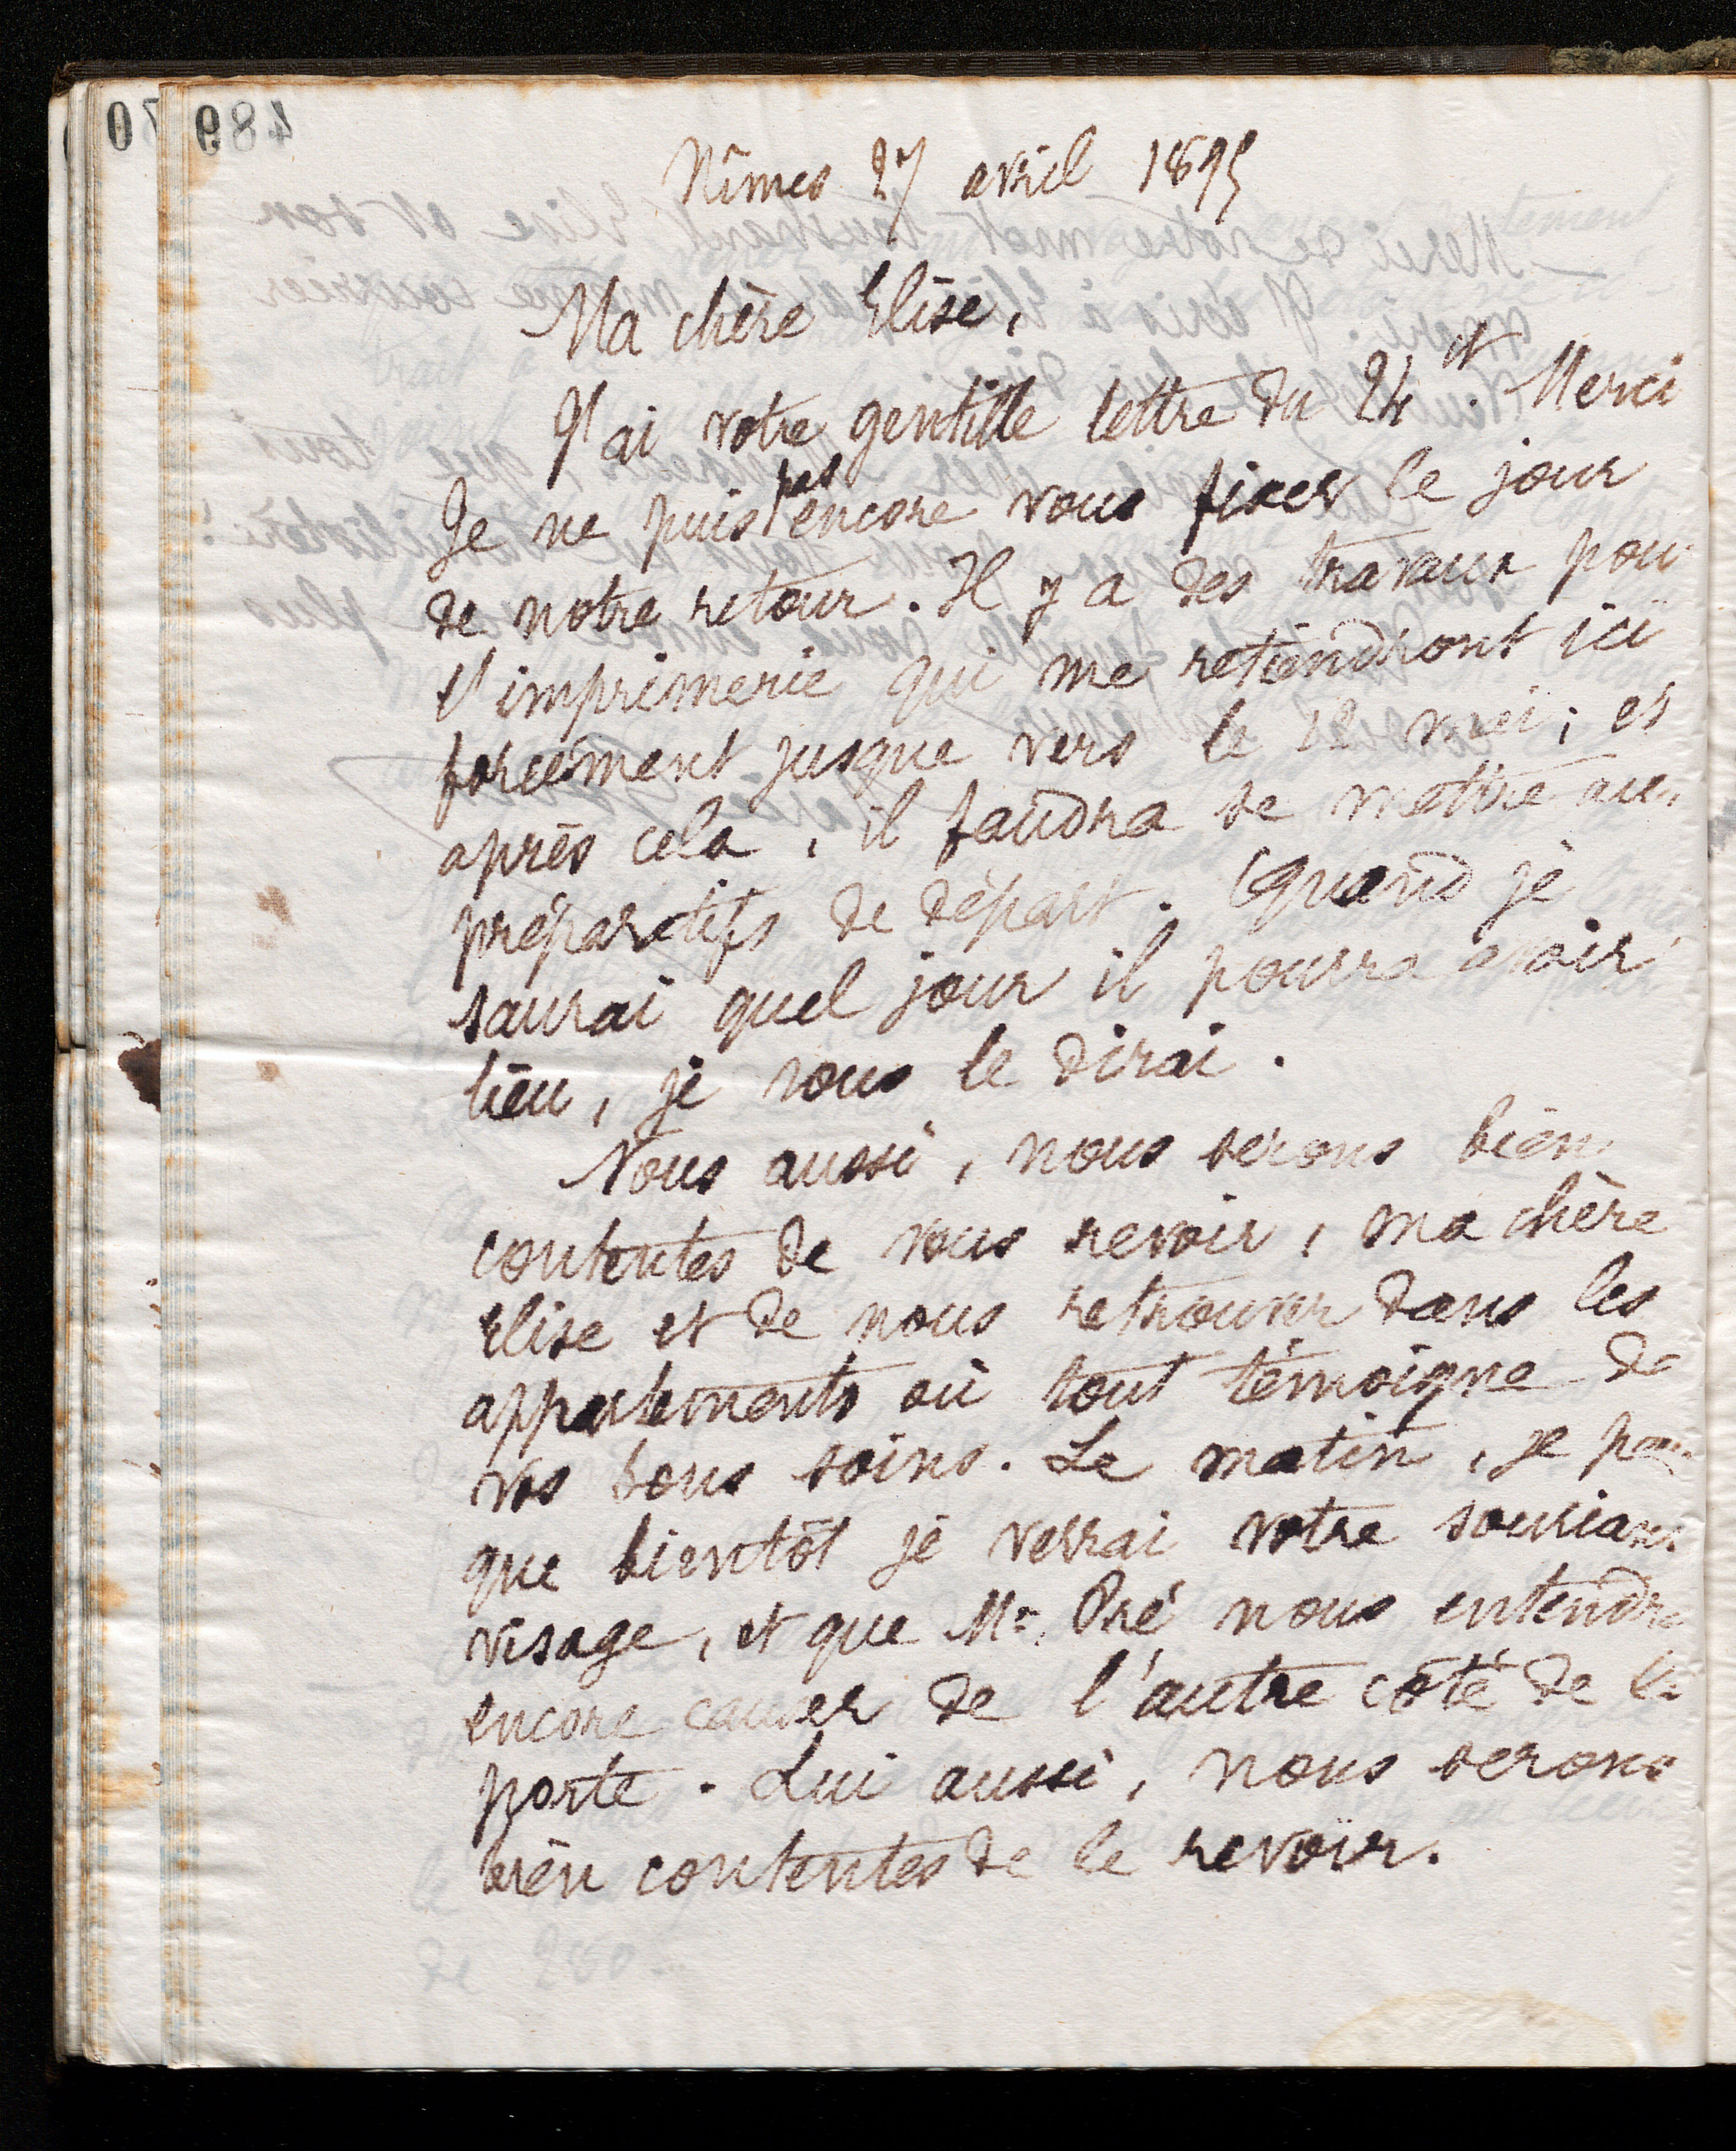 489
Nîmes 27 avril 1895
Ma chère Elise,
J'ai votre gentille lettre du 24 ct. Merci
Je ne puis pas encore vous fixer le jour
de notre retour. Il y a des travaux pour
l'imprimerie qui me retiendront ici
forcément jusque vers le 12 mai; et
après cela, il faudra se mettre aux
préparatifs de départ. Quand je
saurai quel jour il pourra avoir
lieu, je vous le dirai.
Nous aussi, nous serons bien
contentes de vous revoir, ma chère
Elise et de nous retrouver dans les
appartements où tout témoigne de
vos bons soins. Le matin, je
que bientôt je verrai votre souriant
visage, et que Mr. Pré nous entendra
encore causer de l'autre côté de la
porte. Lui aussi, nous serons
bien contentes de le revoir.